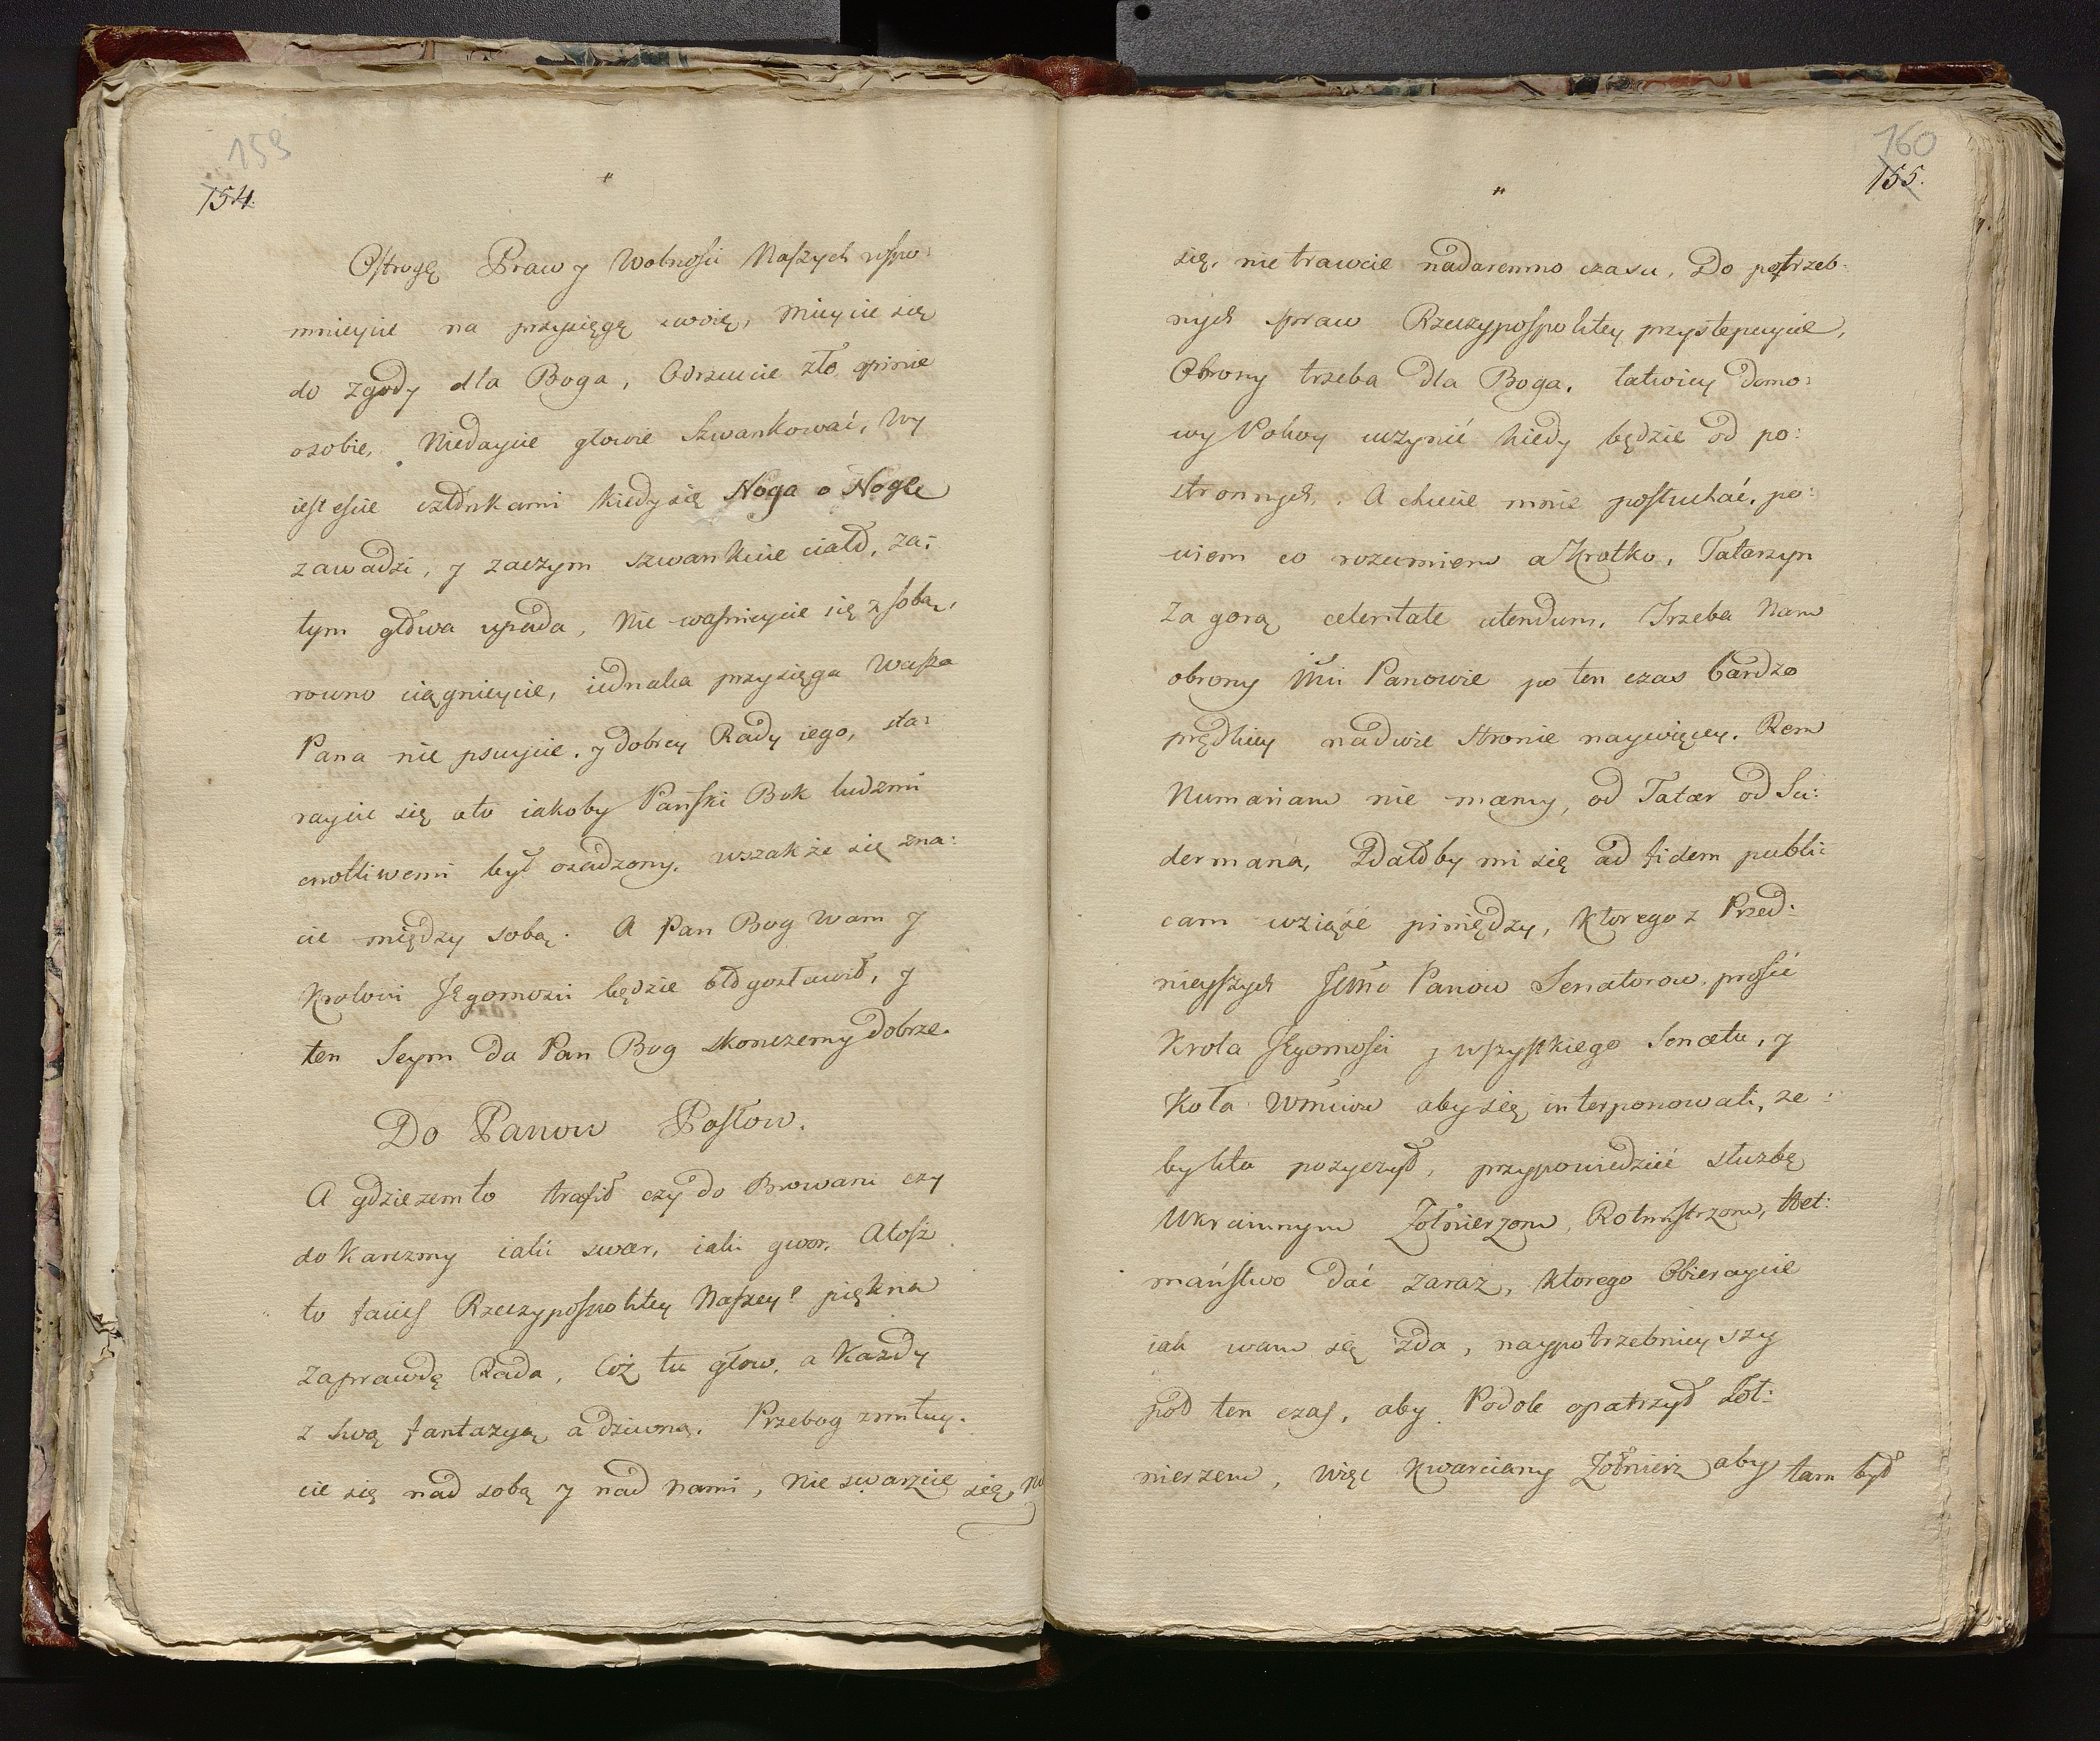 159
154.
Ostrogę Praw y Wolnosci Naszych wspo:
mnieycie na przysięgę swoię, mieycie się
do zgody dla Boga, Odrzucie złe opinie
osobie, Niedaycie głowie Szwankować, Wy
iestescie członkami kiedy się Noga o Nogę
zawadzi, y zaczym szwankuie ciało, za:
tym głowa upada, Nie waśnieycie się z sobą,
rowno ciągnieycie, iednaka przysięga Wasza
Pana nie psuycie. y dobrey Rady iego, sta:
raycie się oto iakoby Pański Bok ludzmi
cnotliwemi był osadzony. wszakże się zna:
cie między sobą. A Pan Bog Wam y
Krolowi Jegomosci będzie błogosławił, y
ten Seym da Pan Bog skonczemy dobrze.
Do Panow Posłow.
A gdziezem to trafił czy do Browaru czy
do Karczmy iaki swar, iaki gwar. Atosz
to facies Rzeczypospolitey Naszey? piękna
zaprawdę Rada, Coż tu głow, a Każdy
z Swą fantazyą a dziwną. Przebog zmiłuy.
cie się nad sobą y nad Nami, Nie swarzcie się,
160
155.
się, nie trawcie nadaremno czasu, Do potrzeb:
nych spraw Rzeczypospolitey przystępuycie,
Obrony trzeba dla Boga. łatwiey domo:
wy Pokoy uczynić kiedy będzie od po:
stronnych. A chcecie mnie posłuchać, po:
wiem co rozumiem a Krotko, Tatarzyn
Za gorą celeritate utendum, Trzeba Nam
obrony Mci Panowie po ten czas bardzo
prędkiey nadwie stronie naywięcey. Rem
Numariam nie mamy, od Tatar od Su:
dermana, Zdałoby mi się ad fidem publi:
cam wziąść pieniędzy, Ktorego z Przed:
nieyszych Ichmc Panow Senatorow, prosić
Krola Jegomosci y wszystkiego Senatu, y
Koła Wmciow aby się interponowali, ze:
by kto pozyczył, przypowiedzieć służbę
Ukrainnym Żołnierzom, Rotmistrzom, Het:
maństwo dać zaraz, Ktorego Obieraycie
iak wam się zda, naypotrzebnieyszy
pod ten czas, aby Podole opatrzył Zoł:
nierzem, więc Kwarciany Żołnierz aby tam był